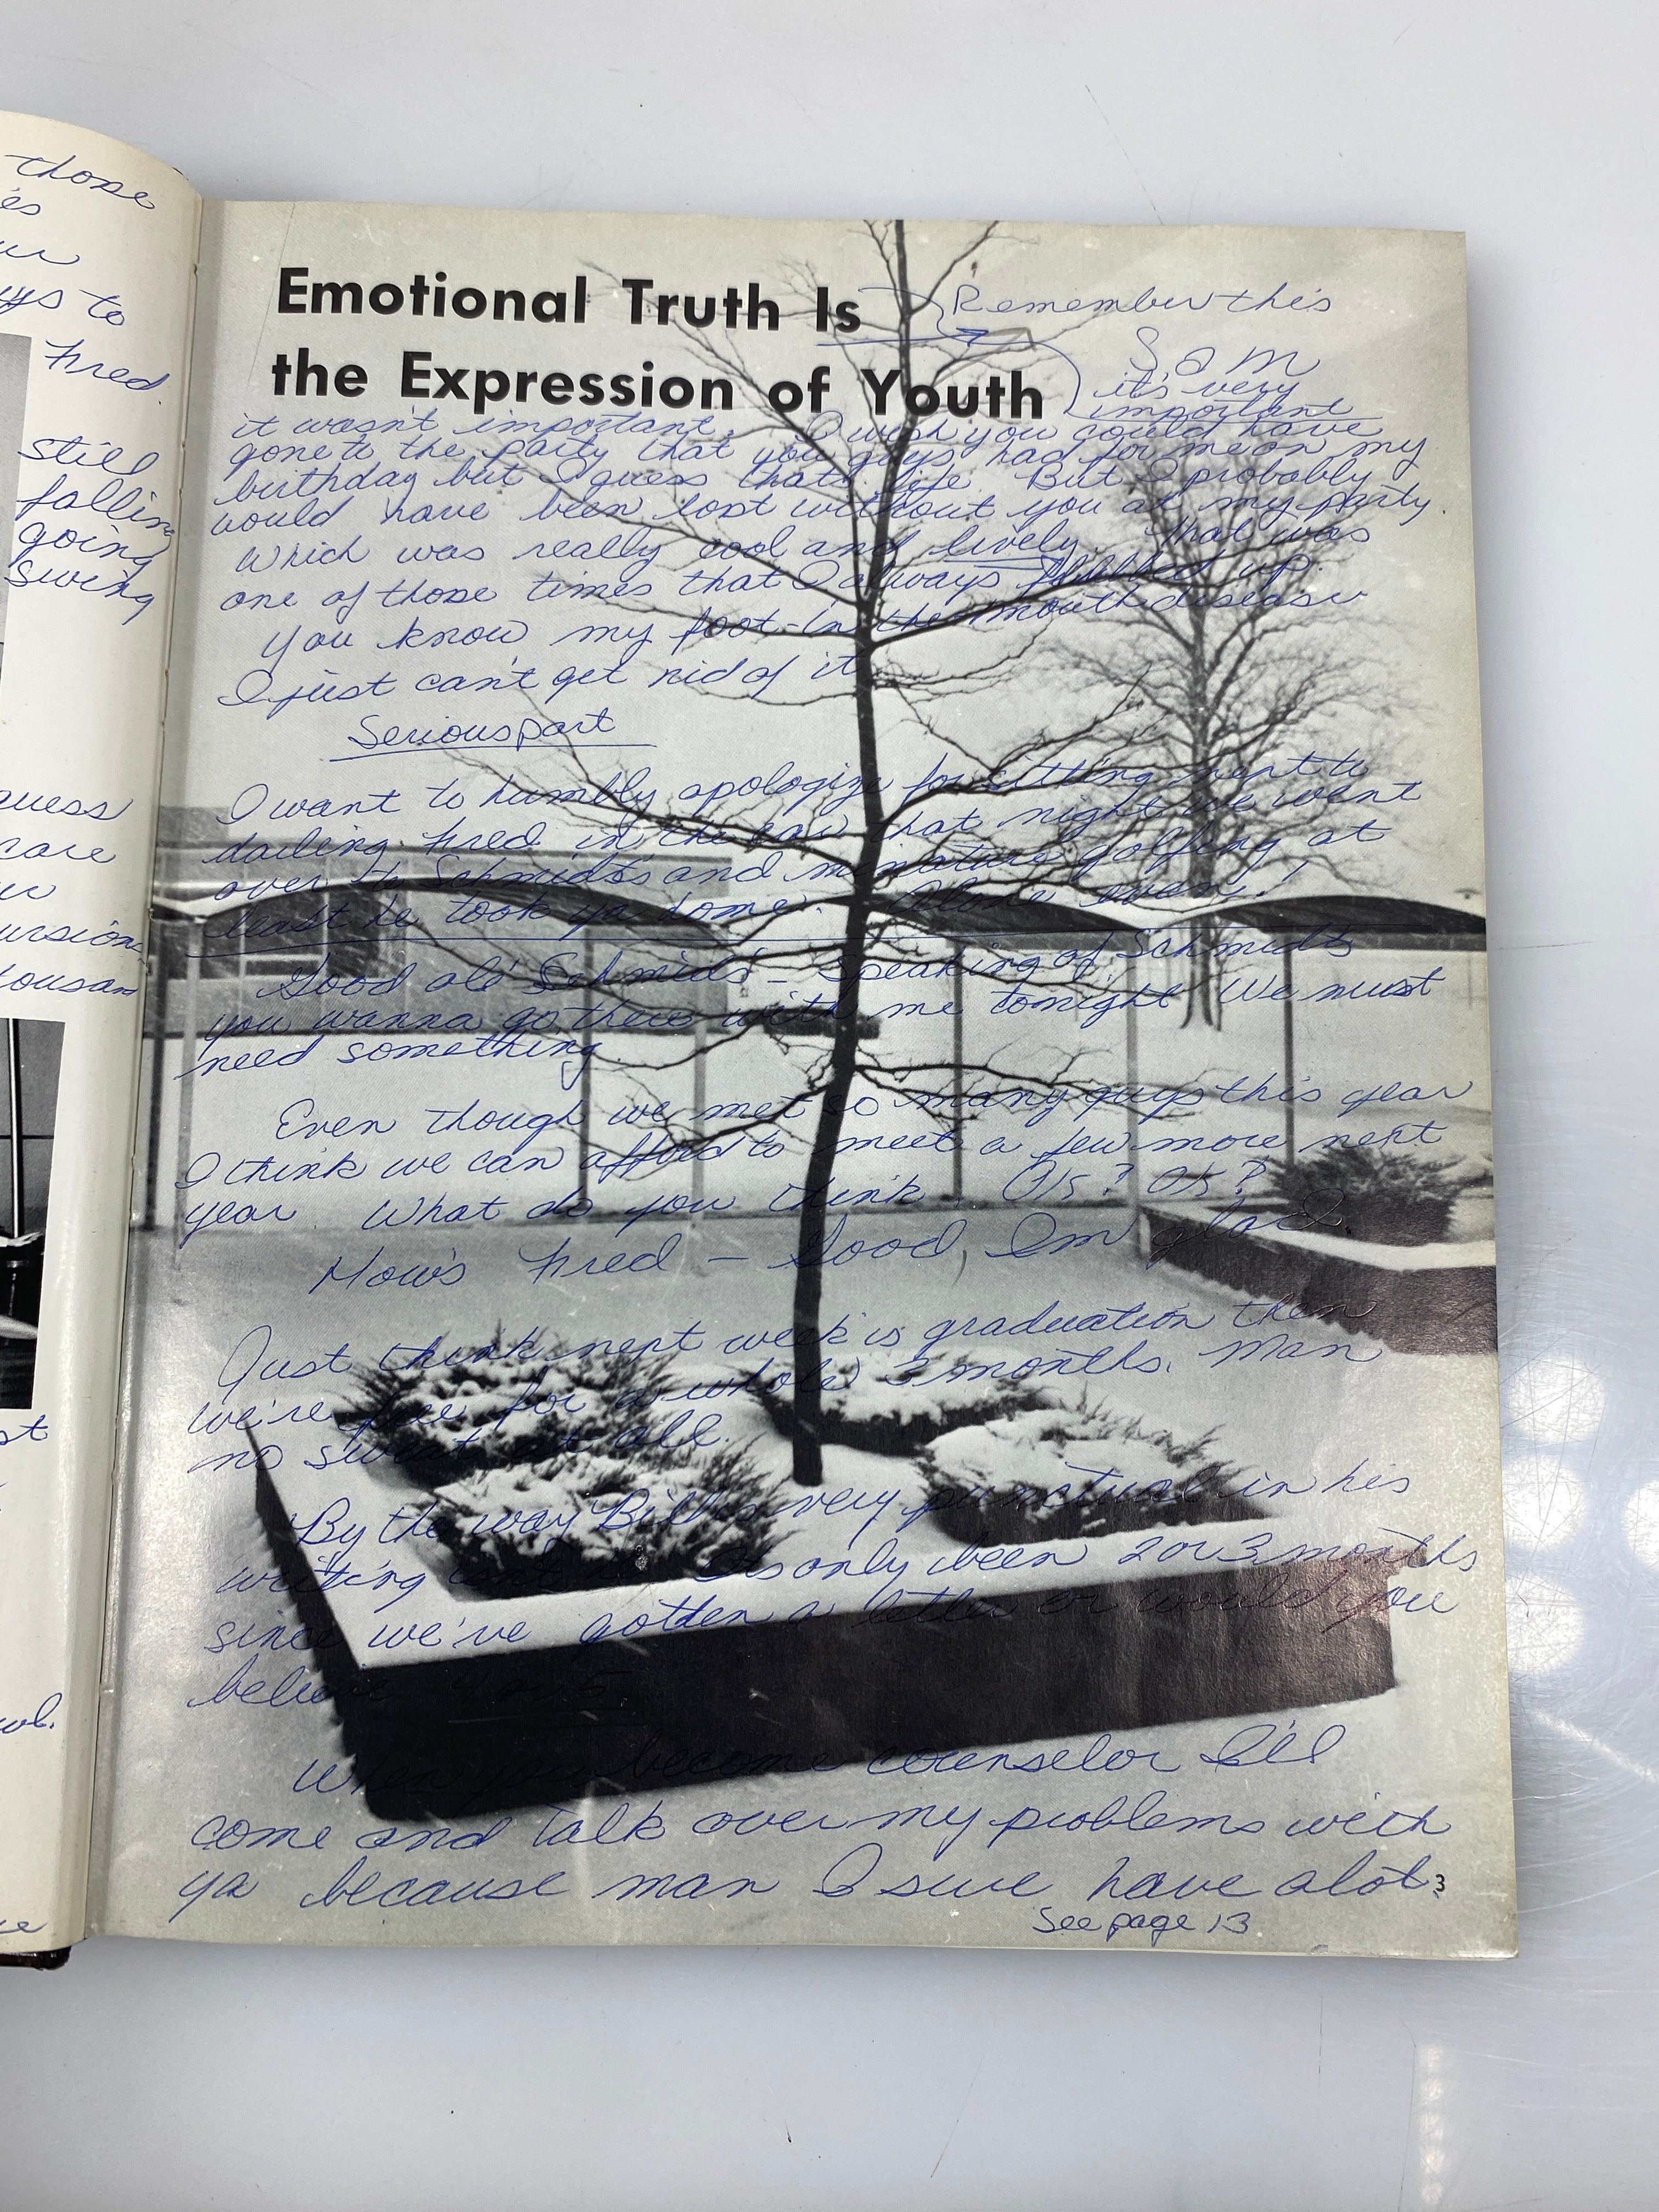 those
Fred.
still
falling
going
swing
guess
care
Emotional Truth Is
the Expression of Youth
Remember this
Sam
it's very
important
it wasn't important. I wish you could have
gone to the party that you guys had for me on my
birthday but I guess thats life. But I probably
would have been lost without you at my party.
Which was really cool and lively. That was
one of those times that I always up.
You know my foot-in the mouth disease
I just can't get rid of it
Serious part
I want to humbly apologize for sitting next to
darling Fred in the car that night we went
over to Schmidts and minature golfing at
least he took ya home. Alone even!
Good ole' Schmidts - Speaking of Schmidts
you wanna go there with me tonight We must
need something.
Even though we met so many guys this year
I think we can afford to meet a few more next
year. What do you think. OK? OK?
How's Fred - Good, Im glad.
Just think next week is graduation then
we're free for a whole 3 months. Man
no sweat at all.
By the way Bill is very punctual in his
writing isn't he. Its only been 2 or 3 months
since we've gotten a letter or would you
believe 4 or 5
When you become counselor I'll
come and talk over my problems with
ya because man I sure have alot.
3
See page 13